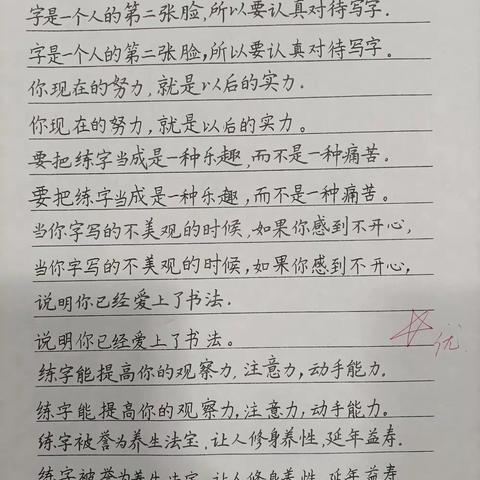 字是一个人的第二张脸,所以要认真对待写字.
字是一个人的第二张脸,所以要认真对待写字。
你现在的努力,就是以后的实力.
你现在的努力,就是以后的实力。
要把练字当成是一种乐趣,而不是一种痛苦.
要把练字当成是一种乐趣,而不是一种痛苦。
当你字写的不美观的时候,如果你感到不开心,
当你字写的不美观的时候,如果你感到不开心,
说明你已经爱上了书法.
说明你已经爱上了书法。
优
练字能提高你的观察力,注意力,动手能力.
练字能提高你的观察力,注意力,动手能力。
练字被誉为养生法宝,让人修身养性,延年益寿.
练字被誉为养生法宝,让人修身养性,延年益寿